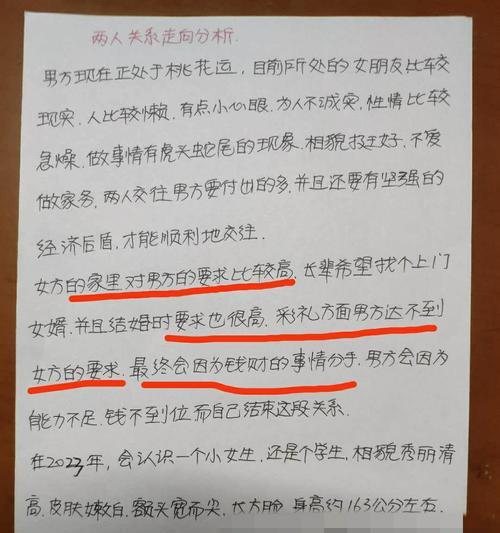 两人关系走向分析.
男方现在正处于桃花运，目前所处的女朋友比较
现实，人比较懒，有点小心眼，为人不诚实，性情比较
急燥，做事情有虎头蛇尾的现象，相貌挺好，不爱
做家务，两人交往男方要付出的多，并且还要有坚强的
经济后盾，才能顺利地交往．
女方的家里对男方的要求比较高，长辈希望找个上门
女婿，并且结婚时要求也很高，彩礼方面男方达不到
女方的要求，最终会因为钱财的事情分手，男方会因为
能力不足，钱不到位而自己结束这段关系．
在2023年，会认识一个小女生，还是个学生，相貌秀丽清
高，皮肤嫩白，额头宽而尖，长方脸，身高约163公分左右．